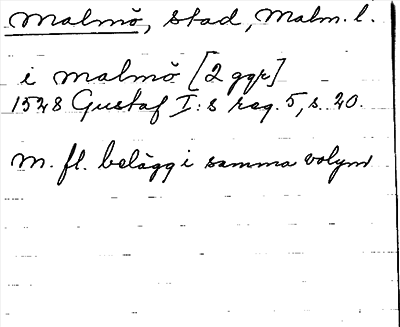 Malmö, stad, Malm. l.
i malmö [2 ggr]
1528 Gustaf I:s reg. 5, s. 20.
M. fl. belägg i samma volym